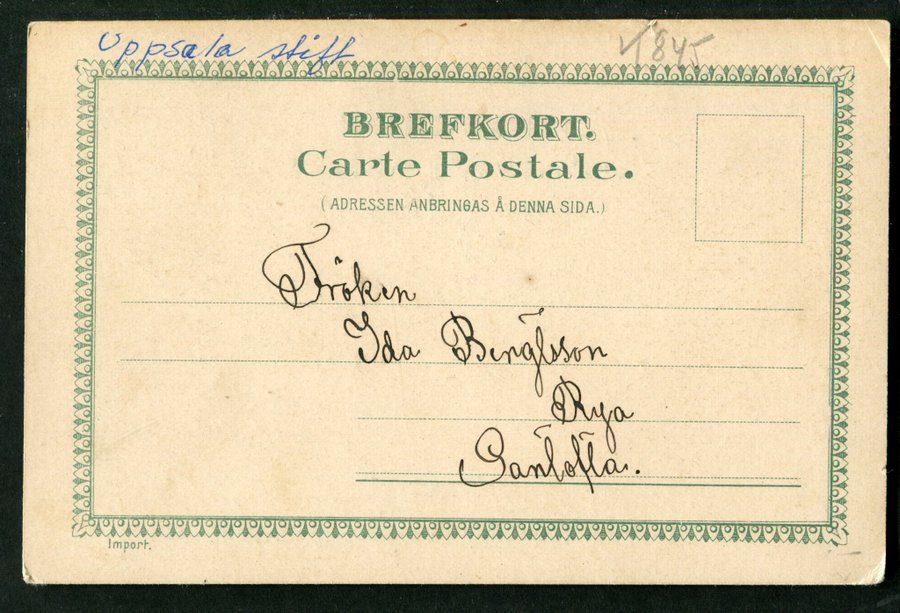 Uppsala stift
1845
BREFKORT.
Carte Postale.
(ADRESSEN ANBRINGAS Å DENNA SIDA.)
Fröken
Ida Bengtsson
Rya
Santofta.
Import.